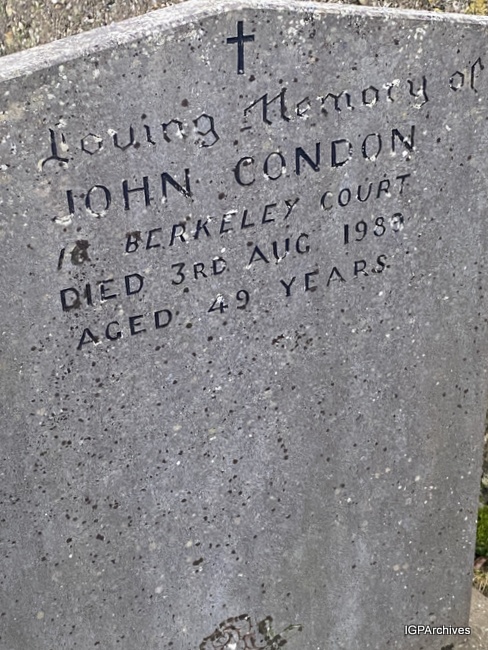 Loving Memory of
JOHN CONDON
BERKELEY COURT
DIED 3RD AUG
AGED 49 YEARS
IGPArchives